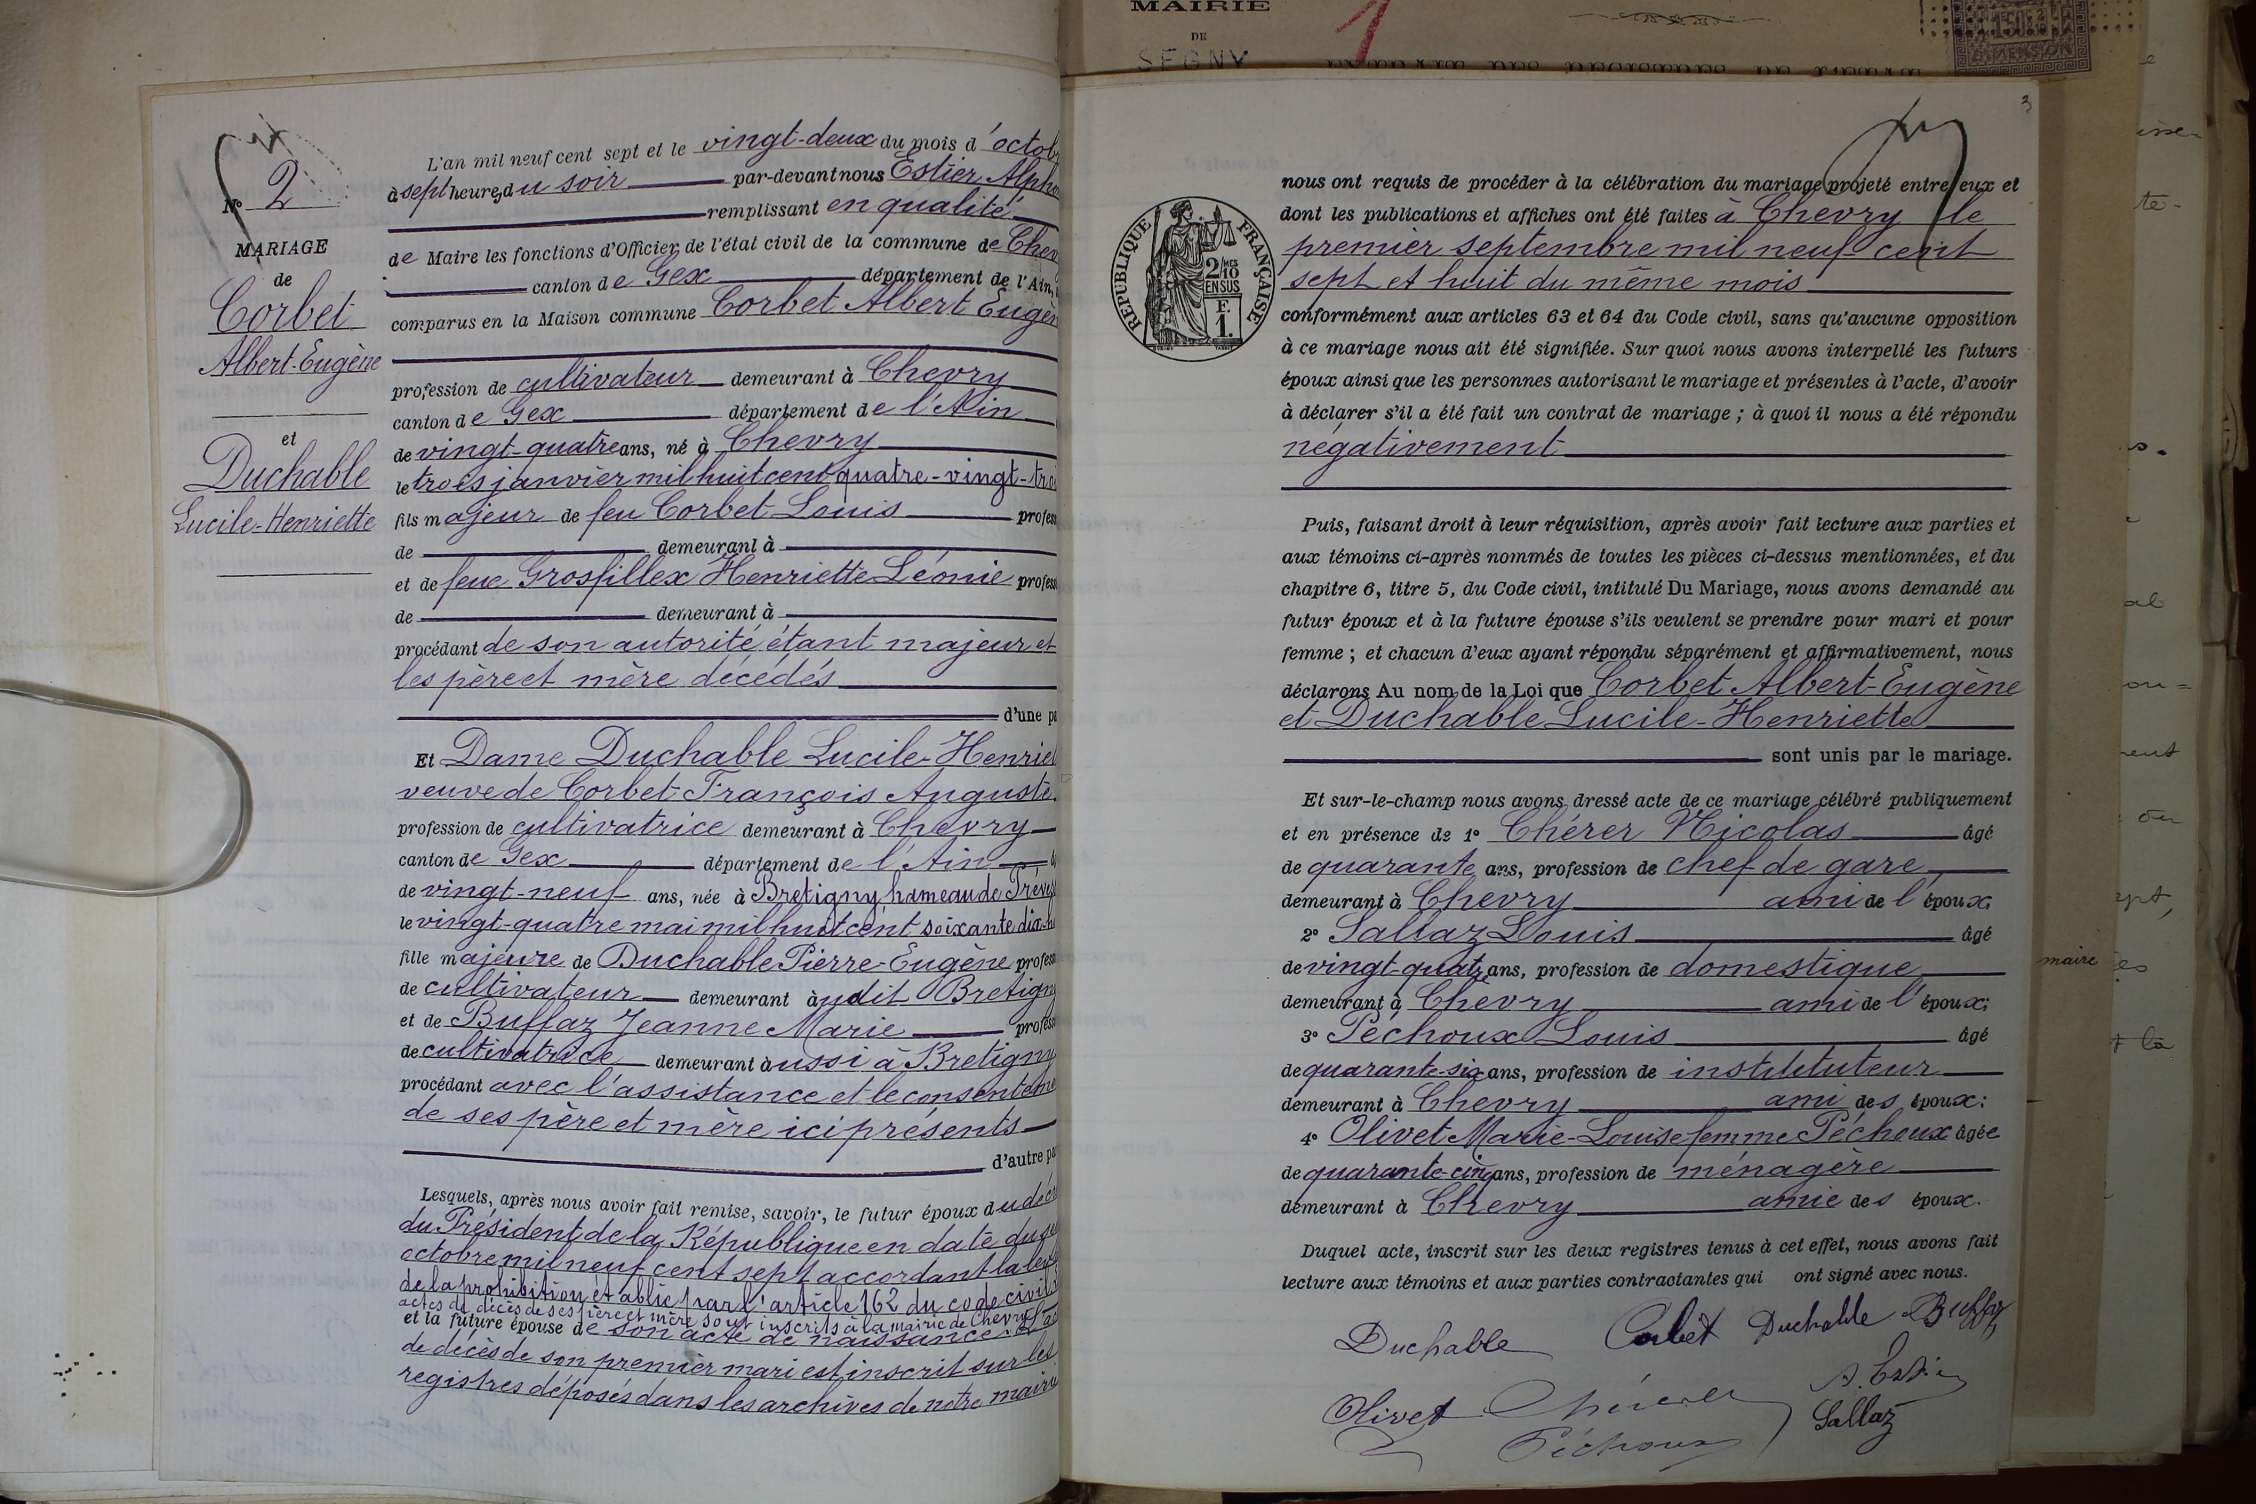 Nº 2
MARIAGE
de
Corbet
Albert-Eugène
et
Duchable
Lucile-Henriette
L'an mil neuf cent sept et le vingt-deux du mois d'octob
à sept heures du soir par-devant nous Estier Alpho
remplissant en qualité
de Maire les fonctions d'Officier de l'état civil de la commune de Chev
canton de Gex département de l'Ain,
comparus en la Maison commune Corbet Albert Eugèn
profession de cultivateur demeurant à Chevry
canton de Gex département de l'Ain
de vingt-quatre ans, né à Chevry
le trois janvier mil huit cent quatre-vingt-troi
fils majeur de feu Corbet Louis profess
de demeurant à
et de feue Grosfillex Henriette Léonie profess
de demeurant à
procédant de son autorité étant majeur et
les père et mère décédés
d'une pa
Et Dame Duchable Lucile-Henriet
veuve de Corbet François Auguste
profession de cultivatrice demeurant à Chevry
canton de Gex département de l'Ain
de vingt-neuf ans, née à Bretigny hameau de Préves
le vingt-quatre mai mil huit cent soixante dix-h
fille majeure de Duchable Pierre-Eugène profess
de cultivateur demeurant audit Bretign
et de Buffaz Jeanne Marie profess
de cultivatrice demeurant aussi à Bretigny
procédant avec l'assistance et le consenteme
de ses père et mère ici présents
d'autre pa
Lesquels, après nous avoir fait remise, savoir, le futur époux du décr
du Président de la République en date du
octobre mil neuf cent sept accordant la
de la prohibition établie par l'article 162 du code civil
actes de décès de ses père et mère sont inscrits à la mairie de Chevry
et la future épouse de son acte de naissance
de décès de son premier mari est inscrit sur les
registres déposés dans les archives de notre mairie
MAIRIE
DE
SEGNY
1
EXTRAIT DES REGISTRES DE L'ETAT
1.50
DIMENSION
3
RÉPUBLIQUE FRANÇAISE
2/10 MES
EN SUS
F.
1.
nous ont requis de procéder à la célébration du mariage projeté entre eux et
dont les publications et affiches ont été faites à Chevry le
premier septembre mil neuf cent
sept et huit du même mois
conformément aux articles 63 et 64 du Code civil, sans qu'aucune opposition
à ce mariage nous ait été signifiée. Sur quoi nous avons interpellé les futurs
époux ainsi que les personnes autorisant le mariage et présentes à l'acte, d'avoir
à déclarer s'il a été fait un contrat de mariage ; à quoi il nous a été répondu
négativement
Puis, faisant droit à leur réquisition, après avoir fait lecture aux parties et
aux témoins ci-après nommés de toutes les pièces ci-dessus mentionnées, et du
chapitre 6, titre 5, du Code civil, intitulé Du Mariage, nous avons demandé au
futur époux et à la future épouse s'ils veulent se prendre pour mari et pour
femme ; et chacun d'eux ayant répondu séparément et affirmativement, nous
déclarons Au nom de la Loi que Corbet Albert-Eugène
et Duchable Lucile-Henriette
sont unis par le mariage.
Et sur-le-champ nous avons dressé acte de ce mariage célébré publiquement
et en présence de 1º Chérer Nicolas âgé
de quarante ans, profession de chef de gare
demeurant à Chevry ami de l'époux;
2º Sallaz Louis âgé
de vingt-quatre ans, profession de domestique
demeurant à Chevry ami de l'époux;
3º Péchoux Louis âgé
de quarante-six ans, profession de instituteur
demeurant à Chevry ami des époux;
4º Olivet Marie-Louise femme Péchoux âgée
de quarante-cinq ans, profession de ménagère
demeurant à Chevry amie des époux.
Duquel acte, inscrit sur les deux registres tenus à cet effet, nous avons fait
lecture aux témoins et aux parties contractantes qui ont signé avec nous.
Duchable Corbet Duchable Buffaz
A. Estier
Olivet Chérer Sallaz
Péchoux
maire